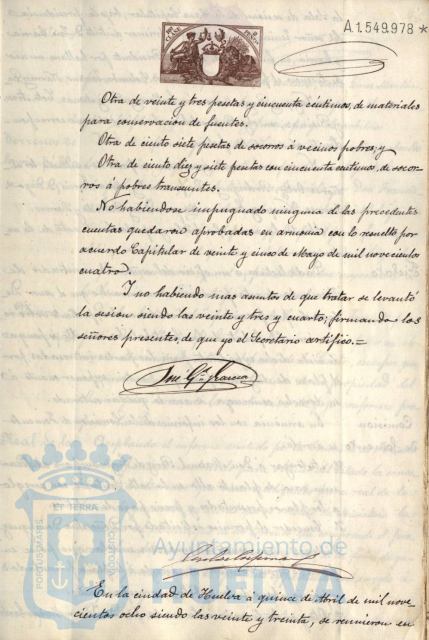 A.1.549.978 *
Otra de veinte y tres pesetas y cincuenta céntimos, de materiales
para conservacion de fuentes.
Otra de ciento siete pesetas de socorros á vecinos pobres, y
Otra de ciento diez y siete pesetas con cincuenta céntimos, de socor-
ros á pobres transeuntes.
No habiendose impugnado ninguna de las precedentes
cuentas quedaron aprobadas en armonia con lo resuelto por
acuerdo Capitular de veinte y cinco de Mayo de mil novecientos
cuatro.
Y no habiendo mas asuntos de que tratar se levantó
la sesion siendo las veinte y tres y cuarto; firmando los
señores presentes, de que yo el Secretario certifico.=
José Gª García
ET TERRA
PORTUS MARIS
CUSTODIA
Ayuntamiento de
HUELVA
En la ciudad de Huelva á quince de Abril de mil nove-
cientos ocho siendo las veinte y treinta, se reunieron en